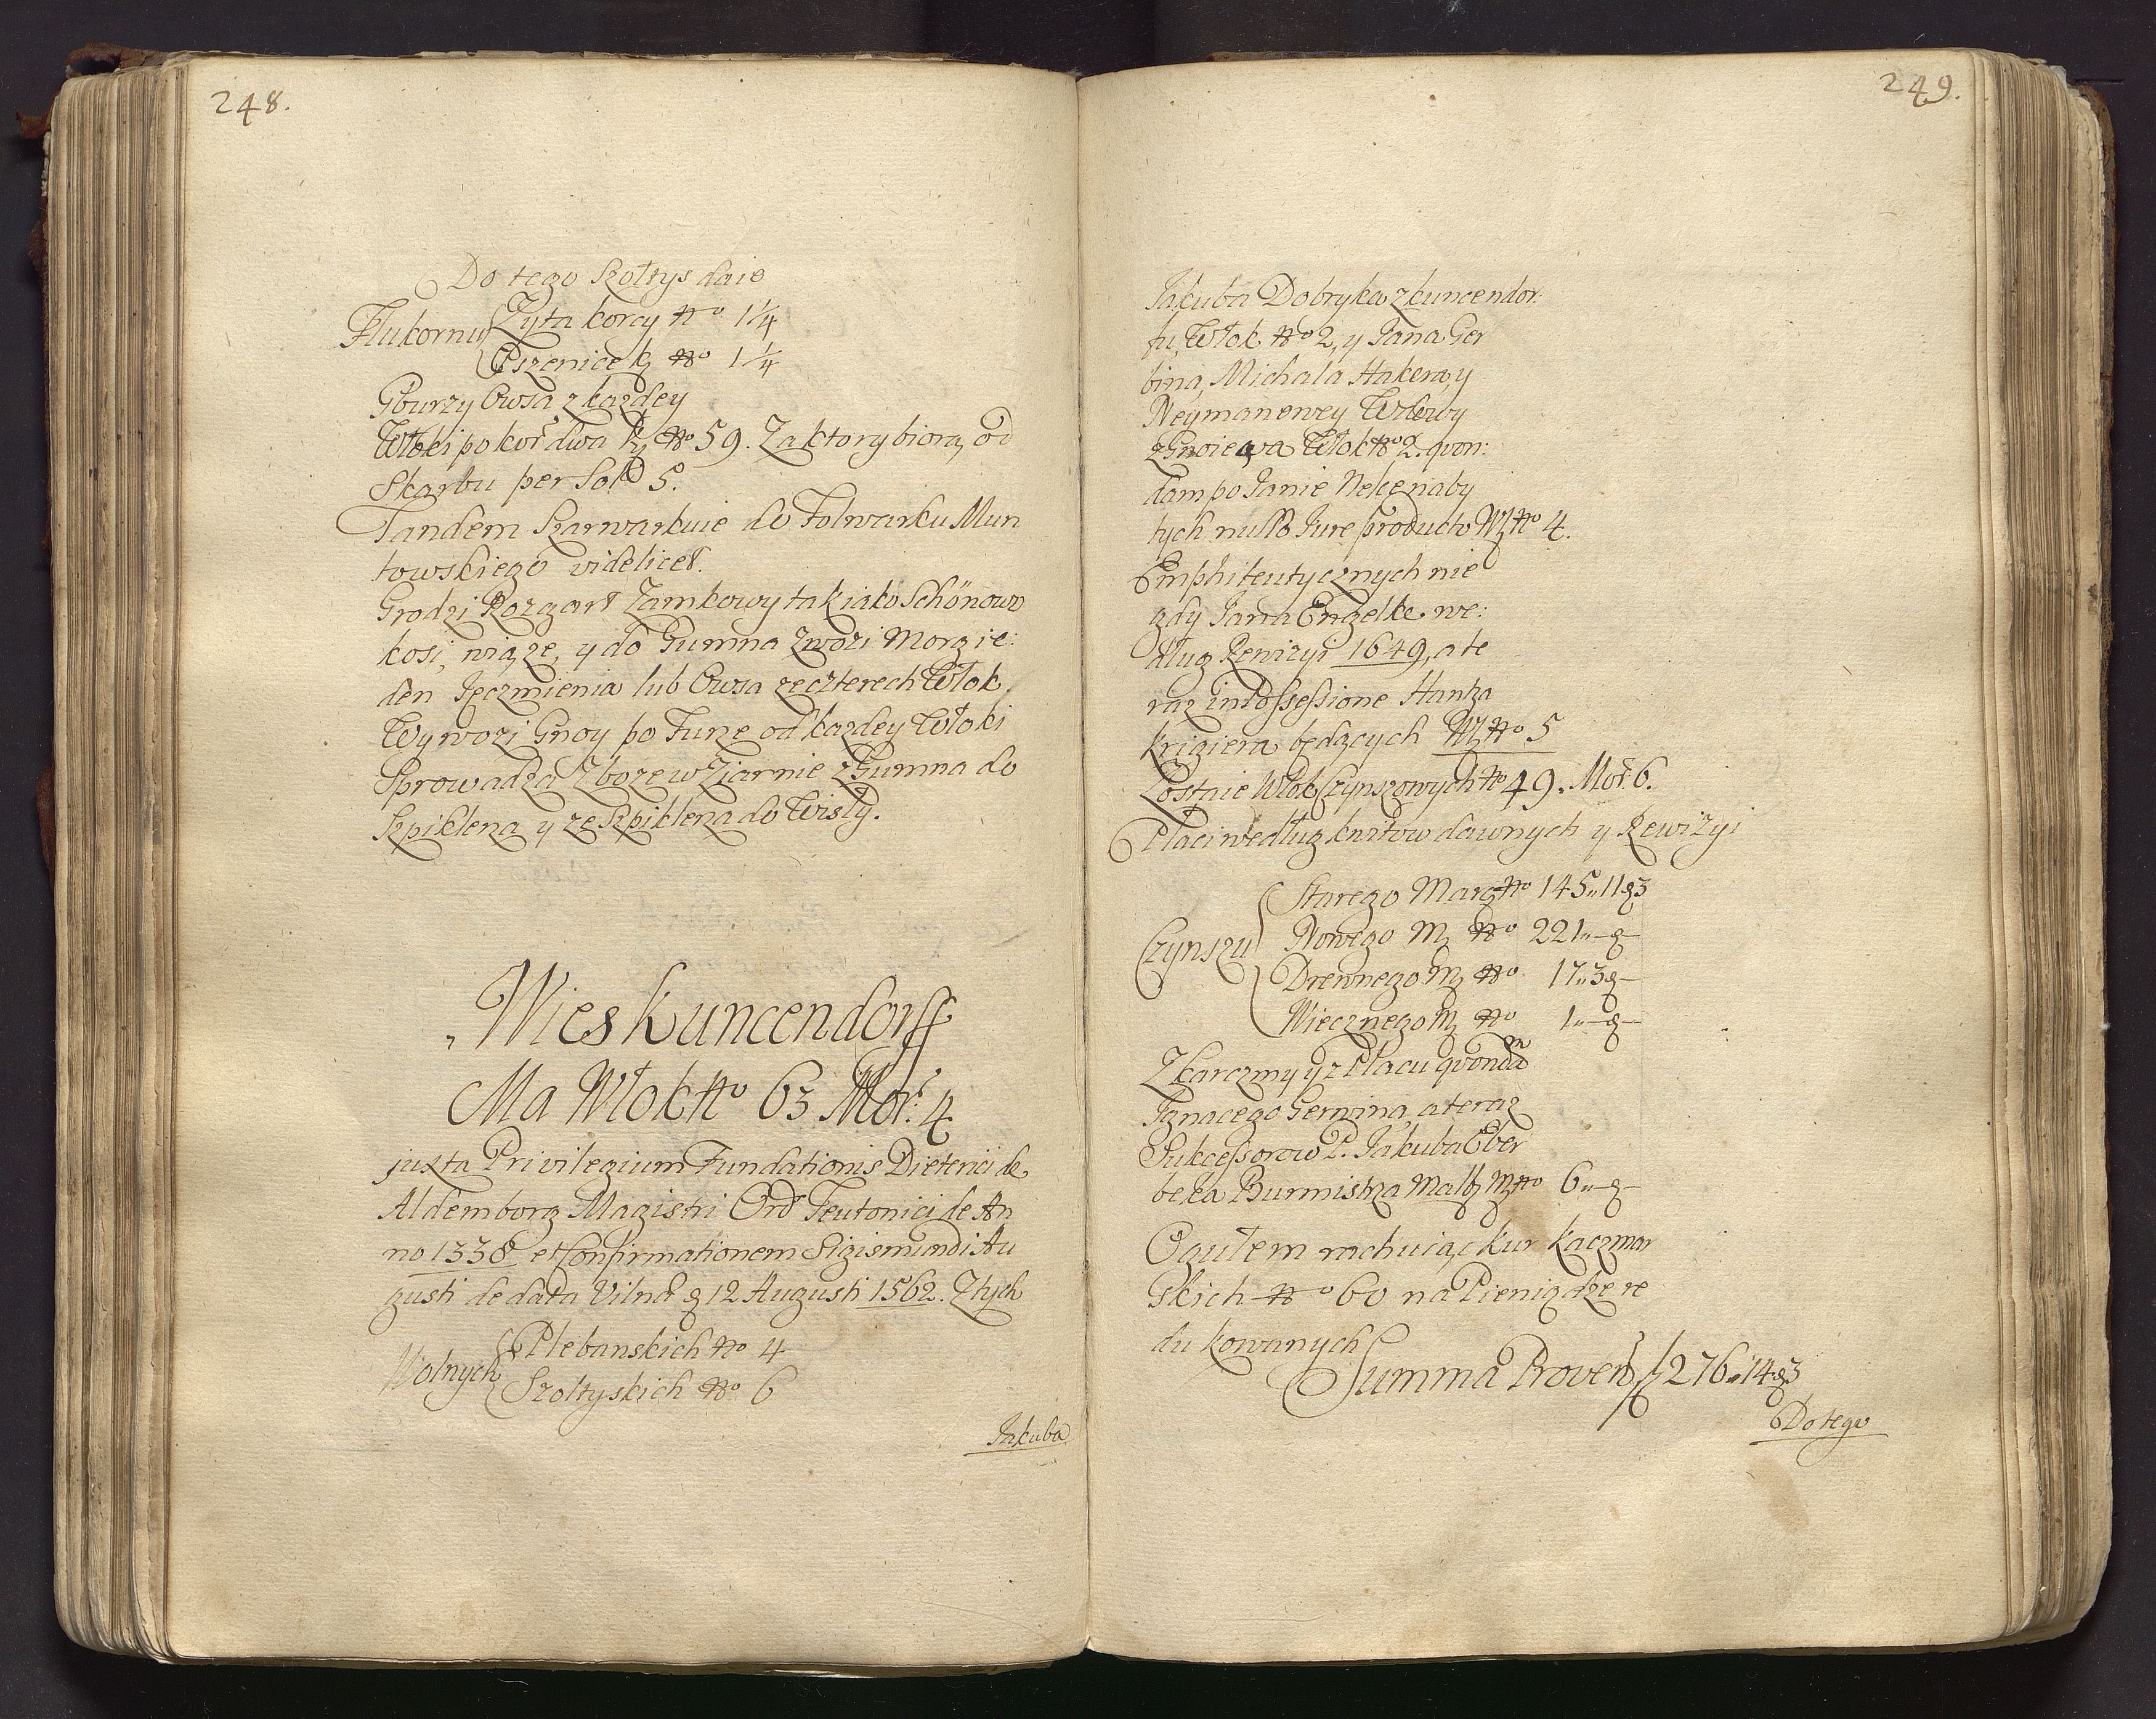 248.
Do tego Szołtys daie
Flukornu Zyta korcy No 1¼
Pszenice k. No 1¼
Gburzy Owsa z każdey
Włoki po koŕ dwa K. No 59. Za ktory biorą od
Skarbu per Sold 5.
Tandem Szarwarkuie do Folwarku Mun
towskiego videlicet.
Grodzi Rozgart Zamkowy tak iako Schönowo
kosi, wiąze, y do Gumna zwozi Morg ie:
den Jęczmienia lub Owsa ze czterech Włok.
Wywozi Gnoy po Furze od każdey Włoki
Sprowadza Zboze w Ziarnie z Gumna do
Szpiklerza y ze Szpiklerza do Wisly.
Wies Kuncendorff
Ma Włok No 63 Moŕ: 4
juxta Privilegium Fundationis Dieterici de
Aldemborg Magistri Ord Teutonici de An
no 1338 et Confirmationem Sigismundi Au
gusti de data Vilnæ 12 Augusti 1562. Z tych
Wolnych Plebanskich No 4
Szoltyskich No 6
Jakuba
249.
Jakuba Dobryka z kuncendor
fu, Włok No 2, y Jana Ger
bina, Michala Hakera, y
Neymanowey Wdowy
z Gnoiewa Włok No 2. qvon:
dam po Janie Nekce naby
tych nullo Jure producto W. No 4.
Emphiteutycznych nie
gdy Jana Engelke we:
dlug Rewizyi 1649, a te
raz in possessione Hanza
Krigiera będących W. No 5
Zostaie Włok Czynszowych No 49. Moŕ 6.
Płaci według kwitow dawnych y Rewizyi
Czynszu Starego Marg. No 145„11 g 3
Nowego M. No 221„— g —
Drewnego M. No 17„3 g —
Wiecznego M. No 1„— g —
Z karczmy y z Placu qvondam
Ignacego Gerwina, a teraz
Sukcessorow P. Jakuba Eber
beka Burmistrza Malb. M. No 6„— g —
Ogułem rachuiąc kur kaczmar
skich No 60 na Pieniądze re
dukowanych
Summa Proven f 276„14 g 3
Do tego